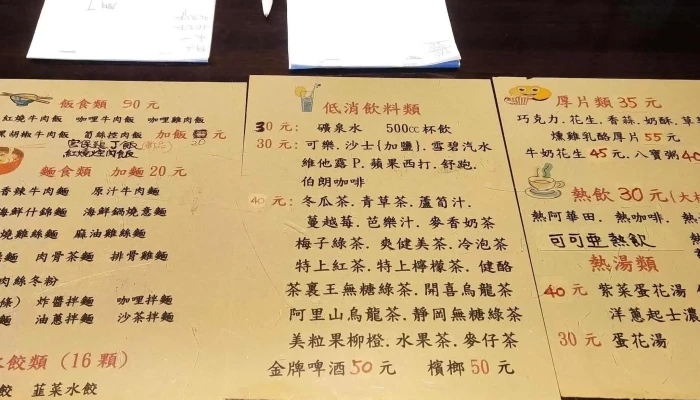 飯食類 90元
紅燒牛肉飯 咖哩牛肉飯 咖哩雞肉飯
黑胡椒牛肉飯 筍絲控肉飯 加飯 20元
紅燒控肉飯
麵食類 加麵20元
香辣牛肉麵 原汁牛肉麵
海鮮什錦麵 海鮮鍋燒意麵
燒雞絲麵 麻油雞絲麵
麵 肉骨茶麵 排骨雞麵
肉絲冬粉
條) 炸醬拌麵 咖哩拌麵
麵 油蔥拌麵 沙茶拌麵
水餃類(16顆)
餃 韮菜水餃
低消飲料類
30元: 礦泉水 500cc杯飲
30元: 可樂.沙士{加鹽}.雪碧汽水
維他露P.蘋果西打.舒跑.
伯朗咖啡
40元: 冬瓜茶.青草茶.蘆筍汁.
蔓越莓.芭樂汁.麥香奶茶
梅子綠茶.爽健美茶.冷泡茶
特上紅茶.特上檸檬茶.健酪
茶裏王無糖綠茶.開喜烏龍茶
阿里山烏龍茶.靜岡無糖綠茶
美粒果柳橙.水果茶.麥仔茶
金牌啤酒50元 檳榔50元
厚片類35元
巧克力.花生.香蒜.奶酥.草
燻雞乳酪厚片55元
牛奶花生45元.八寶粥40
熱飲30元(大
熱阿華田.熱咖啡.熱
可可亞熱飲
熱湯類
40元 紫菜蛋花湯
洋蔥起士濃
30元 蛋花湯